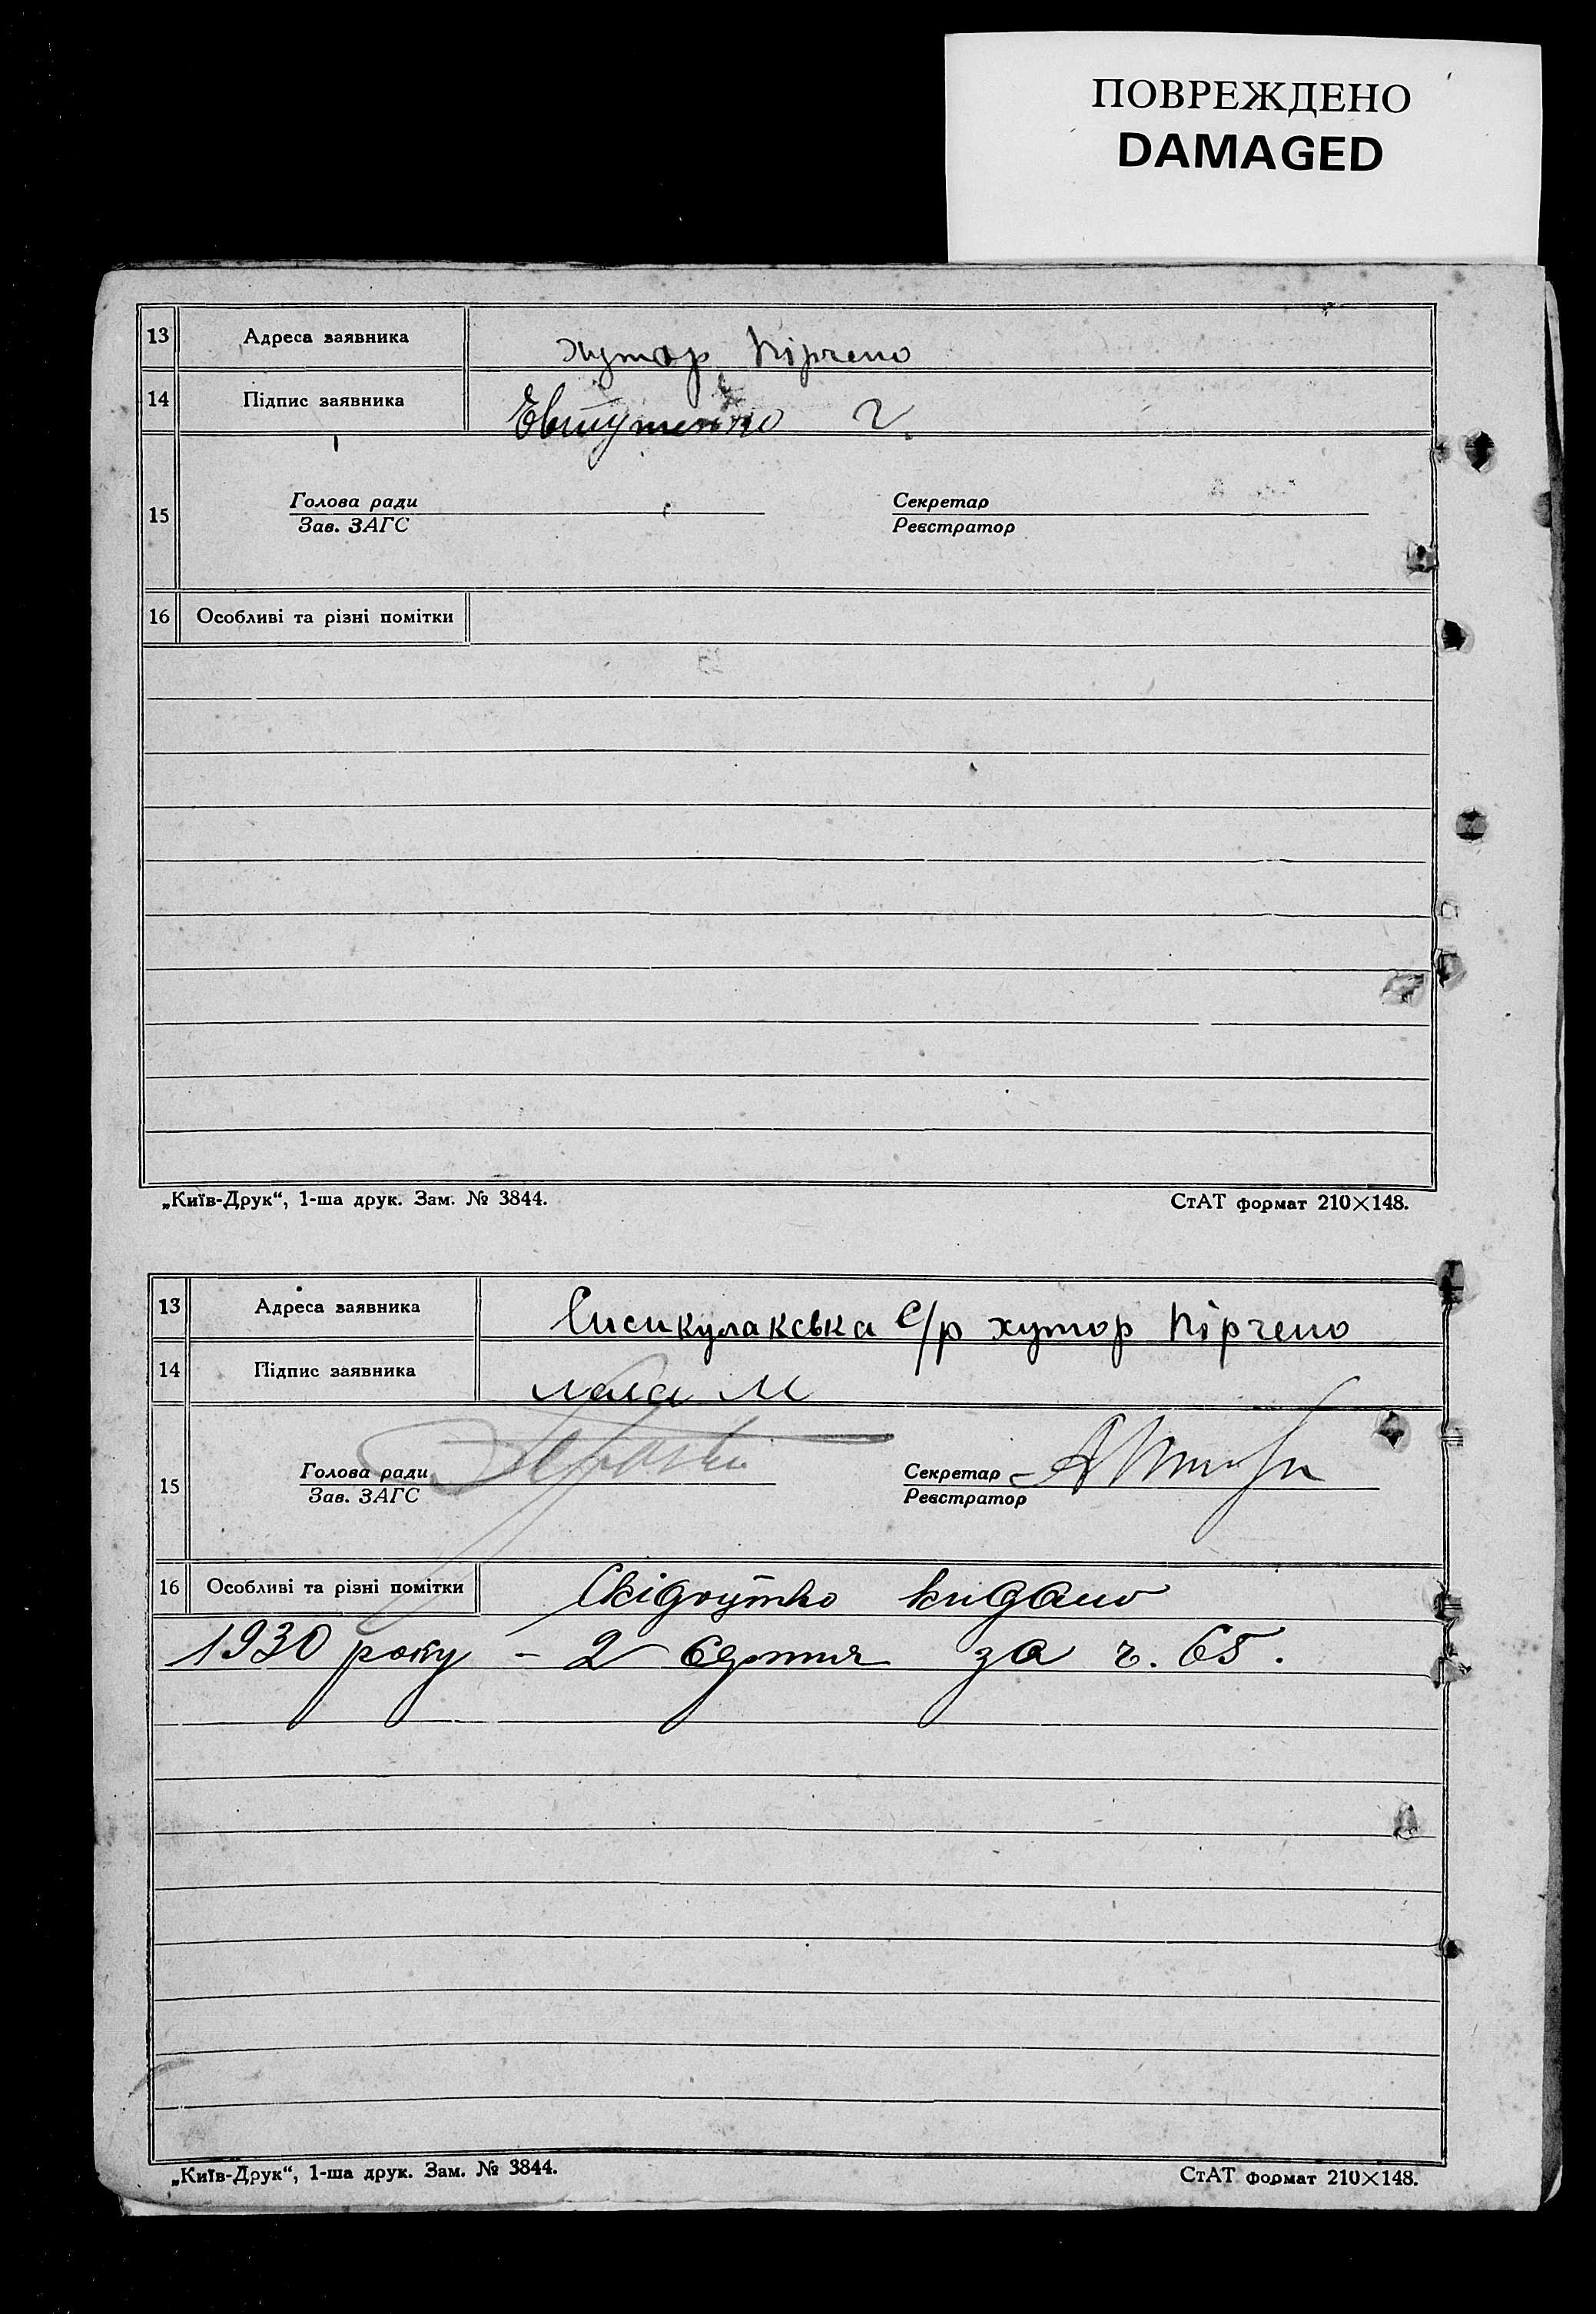 ПОВРЕЖДЕНО
DAMAGED
13 Адреса заявника хутор Кірчено
14 Підпис заявника Евтушенко Г.
15 Голова ради Секретар
Зав. ЗАГС Реєстратор
16 Особливі та різні помітки
„Київ-Друк“, 1-ша друк. Зам. № 3844. СтАТ формат 210×148.
13 Адреса заявника с/р хутор Кірчено
14 Підпис заявника М
15 Голова ради Секретар
Зав. ЗАГС Реєстратор
16 Особливі та різні помітки Свідоцтво видано
1930 року – 2 серпня за ч. 65.
„Київ-Друк“, 1-ша друк. Зам. № 3844. СтАТ формат 210×148.